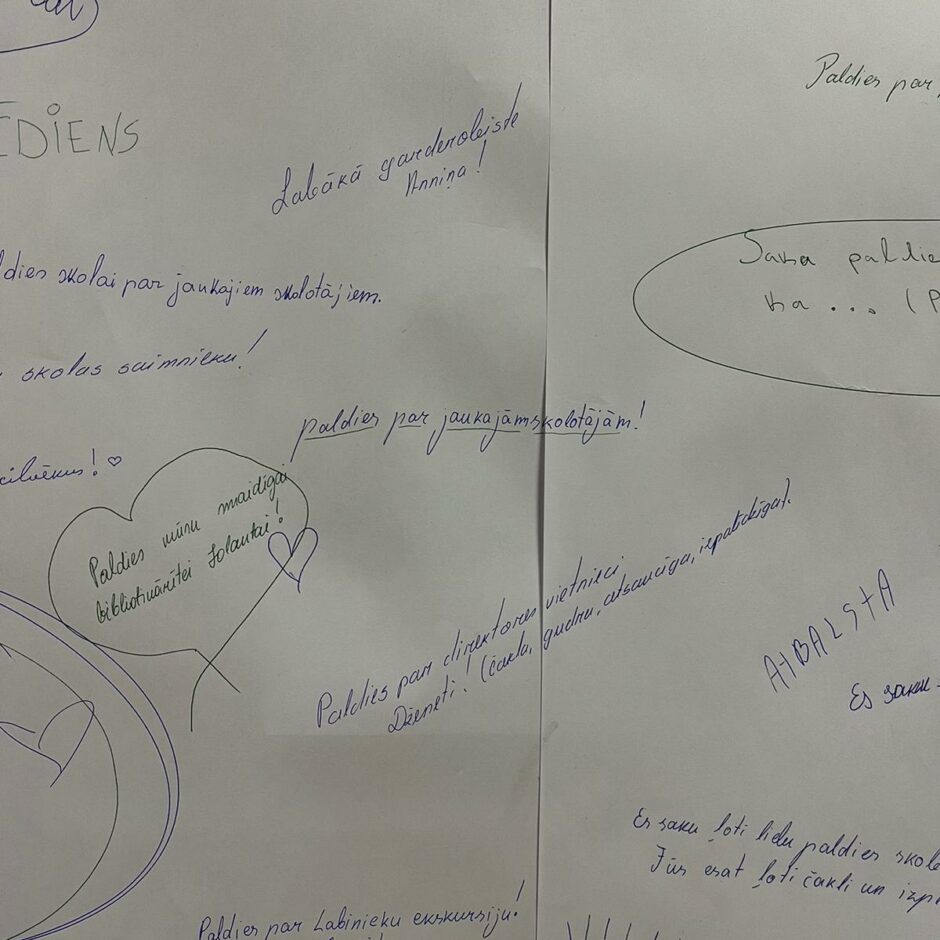 EDIENS
Paldies par
Labākā garderobeiste
Anniņa!
Saka paldie
ka ... (P
ldies skolai par jaukajiem skolotājiem.
skolas saimnieku!
paldies par jaukajām skolotājām!
cilvēkus! ♡
Paldies mūsu maidīgai
bibliotekārītei Jolantai!
Paldies par direktores vietnieci
Dženeti! (čakla, gudra, atsaucīga, iepalīdzīga).
ATBALSTA
Es saku
Es saku ļoti lielu paldies skol
Jūs esat ļoti čakli un izp
Paldies par Labinieku ekskursiju!